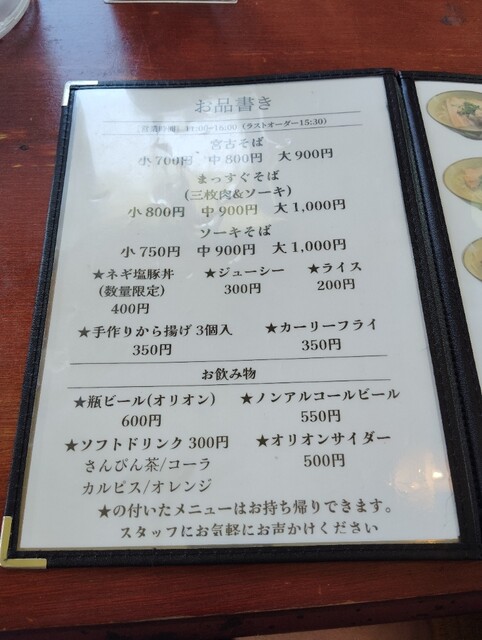 お品書き
[営業時間] 11:00~16:00 (ラストオーダー15:30)
宮古そば
小 700円 中 800円 大 900円
まっすぐそば
(三枚肉&ソーキ)
小 800円 中 900円 大 1,000円
ソーキそば
小 750円 中 900円 大 1,000円
★ネギ塩豚丼 ★ジューシー ★ライス
(数量限定) 300円 200円
400円
★手作りから揚げ 3個入 ★カーリーフライ
350円 350円
お飲み物
★瓶ビール(オリオン) ★ノンアルコールビール
600円 550円
★ソフトドリンク 300円 ★オリオンサイダー
さんぴん茶/コーラ 500円
カルピス/オレンジ
★の付いたメニューはお持ち帰りできます。
スタッフにお気軽にお声かけください